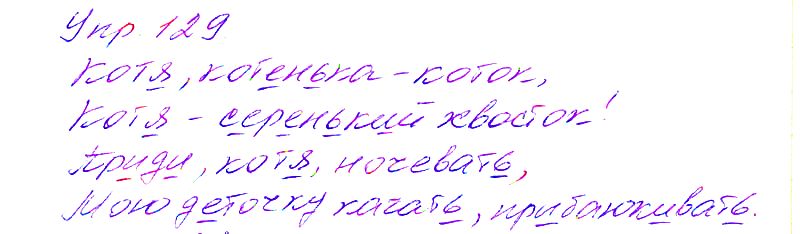 Упр. 129
Котя, котенька - коток,
Котя - серенький хвосток!
Приди, котя, ночевать,
Мою деточку качать, прибаюкивать.